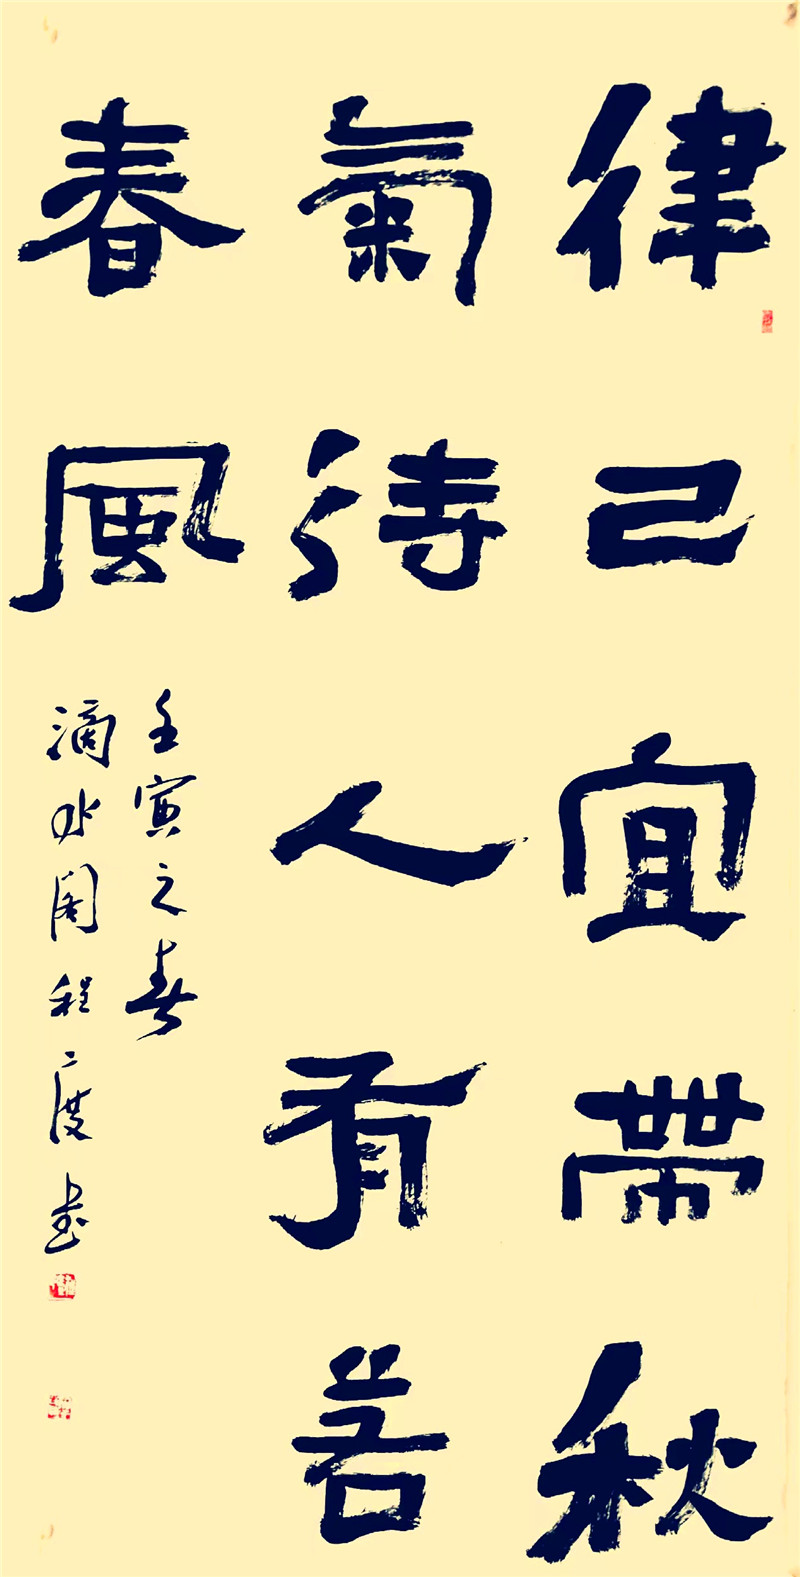 律己宜帶秋
氣待人有若
春風
壬寅之春
滴水閣程度書